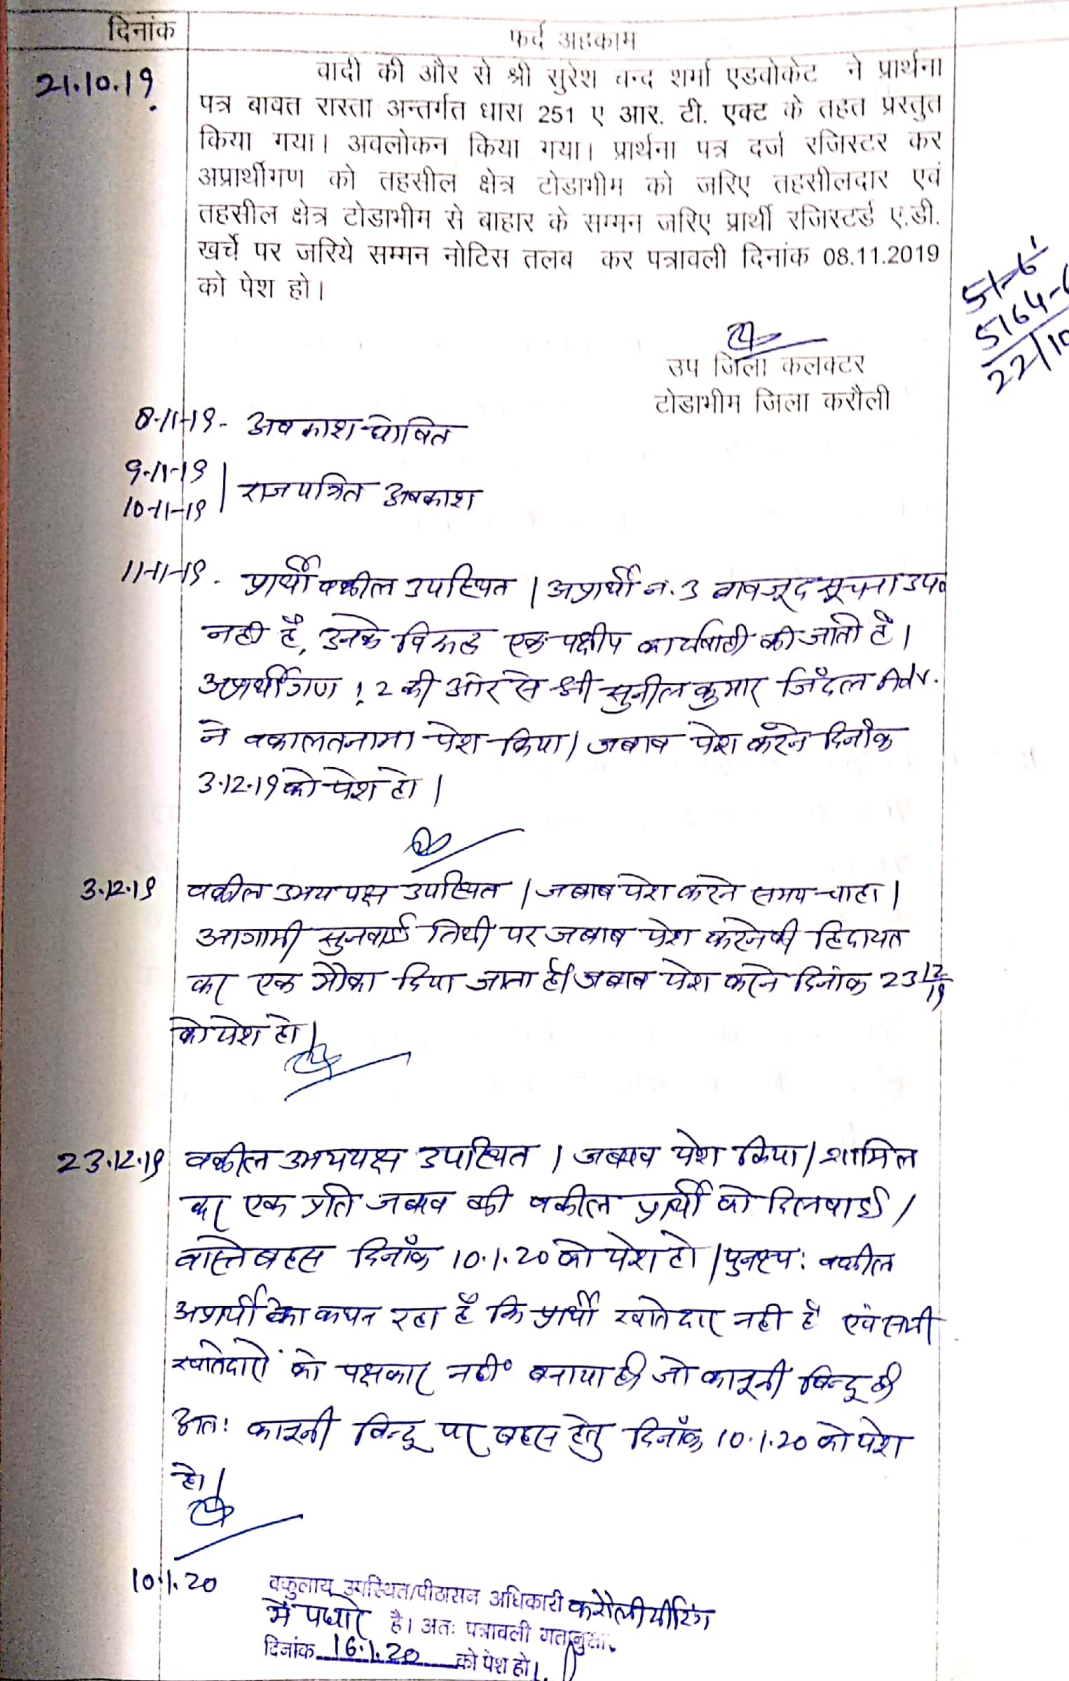 दिनांक
फर्द अहकाम
21.10.19
वादी की और से श्री सुरेश चन्द शर्मा एडवोकेट ने प्रार्थना
पत्र बावत रास्ता अन्तर्गत धारा 251 ए आर. टी. एक्ट के तहत प्रस्तुत
किया गया। अवलोकन किया गया। प्रार्थना पत्र दर्ज रजिस्टर कर
अप्रार्थीगण को तहसील क्षेत्र टोडाभीम को जरिए तहसीलदार एवं
तहसील क्षेत्र टोडाभीम से बाहार के सम्मन जरिए प्रार्थी रजिस्टर्ड ए.डी.
खर्चे पर जरिये सम्मन नोटिस तलब कर पत्रावली दिनांक 08.11.2019
को पेश हो।
उप जिला कलक्टर
टोडाभीम जिला करौली
51-6
5164-6
22/10
8-11-19- अवकाश घोषित
9-11-19
10-11-19 राजपत्रित अवकाश
11-11-19. प्रार्थी वकील उपस्थित । अप्रार्थी न. 3 बावजूद सूचना उप०
नही है, उनके विरूद्ध एक पक्षीय कार्यवाही की जाती है।
अप्रार्थीगण 1, 2 की ओर से श्री सुनील कुमार जिंदल
ने वकालतनामा पेश किया। जबाब पेश करने दिनाँक
3.12.19 को पेश हो।
3.12.19 वकील उभय पक्ष उपस्थित । जबाब पेश करने समय चाहा।
आगामी सुनवाई तिथी पर जबाब पेश करने की हिदायत
कर एक मौका दिया जाता है। जबाब पेश करने दिनांक 23 12/19
को पेश हो।
23.12.19 वकील उभयपक्ष उपस्थित । जबाब पेश किया। शामिल
कर एक प्रति जबाब की वकील प्रार्थी को दिलवाई।
वास्ते बहस दिनाँक 10.1.20 को पेश हो। पुनश्च: वकील
अप्रार्थी का कथन रहा है कि प्रार्थी खातेदार नही है एवं सभी
खातेदारो को पक्षकार नही बनाया है। जो कानूनी बिन्दू है।
अत: कानूनी बिन्दू पर बहस हेतु दिनाँक 10.1.20 को पेश
हो।
10.1.20 वकुलाय उपस्थित/पीठासन अधिकारी करौली मीटिंग
में पधारे है। अतः पत्रावली गतानुसार
दिनांक 16.1.20 को पेश हो।